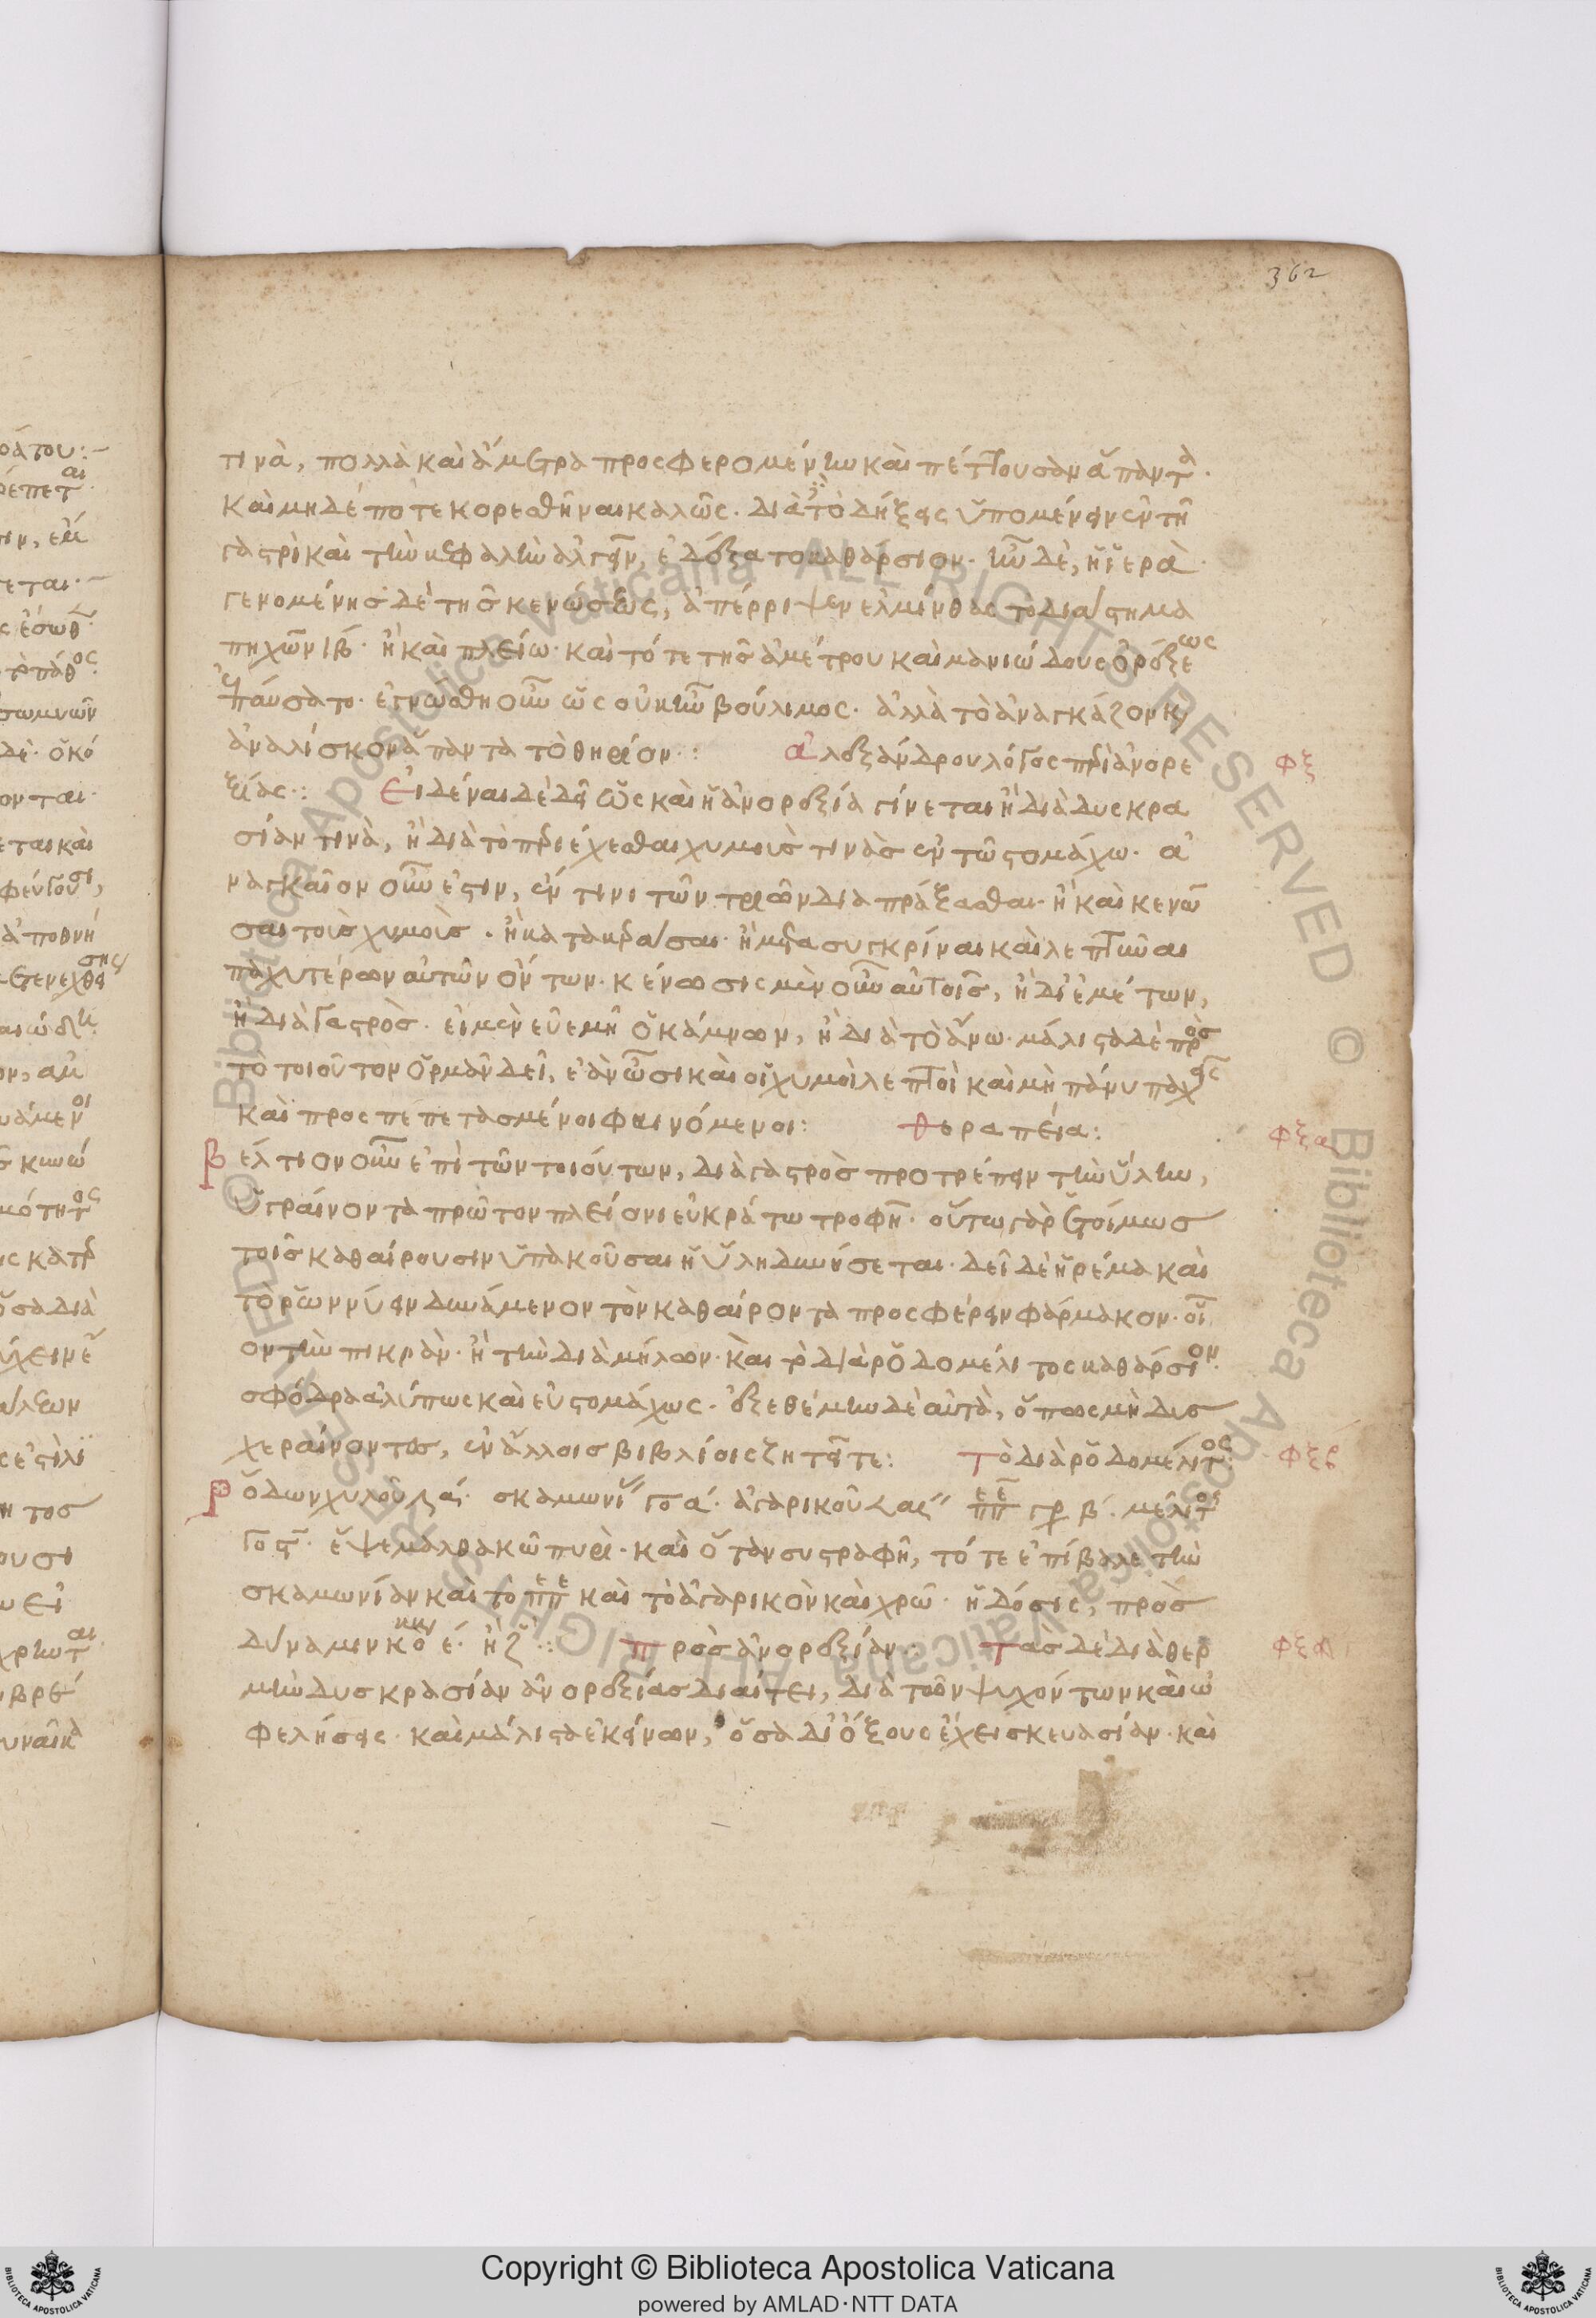 362
τινὰ, πολλὰ καὶ ἄμετρα προσφερομένην καὶ πέττουσαν ἅπαντα.
καὶ μηδέποτε κορεσθῆναι καλῶς. διὰ τὸ δήξεις ὑπομένειν ἐν τῇ
γαστρὶ καὶ τὴν κεφαλὴν ἀλγεῖν, ἐδέξατο καθάρσιον. ἦν δὲ, ἡ ἱερὰ.
γενομένης δὲ τῆς κενώσεως, ἀπέρριψεν ἕλμινθας τὸ διάστημα
πηχῶν ιβ. ἢ καὶ πλείω. καὶ τότε τῆς ἀμέτρου καὶ μανιώδους ὀρέξεως
ἐπαύσατο. ἐγνώσθη οὖν ὡς οὐκ ἦν βούλιμος. ἀλλὰ τὸ ἀναγκάζον κ(αὶ)
ἀναλίσκον ἅπαντα τὸ θηρίον:
ἀλεξάνδρου λόγος περὶ ἀνορε φξ
ξίας: Εἰδέναι δὲ δεῖ ὡς καὶ ἡ ἀνορεξία γίνεται ἢ διὰ δυσκρα
σίαν τινὰ, ἢ διὰ τὸ περιέχεσθαι χυμοὺς τινὰς ἐν τῷ στομάχω. ἀ
ναγκαῖον οὖν ἐστιν, ἕν τινι τῶν τριῶν διαπράξασθαι. ἢ καὶ κενῶ
σαι τοὺς χυμοὺς. ἢ κατακεράσαι. ἢ μετασυγκρίναι καὶ λεπτῦναι
παχυτέρων αὐτῶν ὄντων. κένωσις μὲν οὖν αὐτοῖς, ἢ δι' ἐμέτων,
ἢ διὰ γαστρὸς. εἰ μὲν εὐεμὴ ὁ κάμνων, ἢ διὰ τὸ ἄνω. μάλιστα δὲ πρὸς
τὸ τοιοῦτον ὁρμᾶν δεῖ, ἐὰν ὦσι καὶ οἱ χυμοὶ λεπτοὶ καὶ μὴ πάνυ παχεῖς
καὶ προσπεπετασμένοι φαινόμενοι: θεραπεία: φξα
Βέλτιον οὖν ἐπὶ τῶν τοιούτων, διὰ γαστρὸς προτρέπειν τὴν ὕλην,
ὑγραίνοντα πρῶτον πλείονι εὐκράτω τροφῇ. οὕτω γὰρ ἑτοίμως
τοῖς καθαίρουσιν ὑπακοῦσαι ἡ ὕλη δυνήσεται. δεῖ δὲ ἠρέμα καὶ
τὸ ῥωννύειν δυνάμενον τὸν καθαίροντα προσφέρειν φάρμακον. οἷ
ον τὴν πικρὰν. ἢ τὴν διὰ μήλων. καὶ τὸ διὰ ῥοδομέλιτος καθάρσιον.
σφόδρα ἀλύπως καὶ εὐστομάχως. ἐξεθέμην δὲ αὐτὰ, ὅπως μὴ δυσ
χεραίνοντες, ἐν ἄλλοις βιβλίοις ζητεῖτε: Τὸ διὰ ῥοδομέλιτος: φξβ
Ῥόδων χυλοῦ ξα. σκαμωνί γο α. ἀγαρικοῦ πεπε γρ β. μέλιτος
γο ς. ἕψε μαλθακῶ πυρὶ. καὶ ὅταν συστραφῇ, τότε ἐπίβαλε τὴν
σκαμωνίαν καὶ τὸ πεπε καὶ τὸ ἀγαρικὸν καὶ χρῶ. ἡ δόσις, πρὸς
δύναμιν κο ε. ἢ ζ: Πρὸς ἀνορεξίαν: Τὰς δὲ διὰ θερ φξγ
μὴν δυσκρασίαν ἀνορεξίας διαίτει, διὰ τῶν ψυχόντων καὶ ὠ
φελήσεις. καὶ μάλιστα ἐκείνων, ὅσα δι' ὄξους ἔχει σκευασίαν. καὶ
Copyright © Biblioteca Apostolica Vaticana
powered by AMLAD·NTT DATA